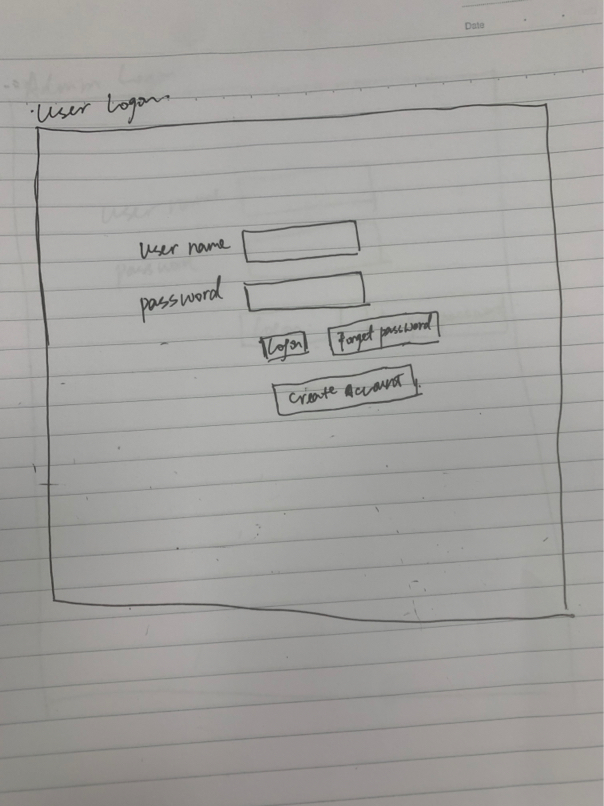 Date
User Logon
User name
password
Logon Forget password
Create Account